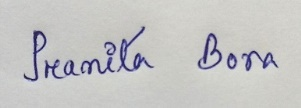 Pranita Bora